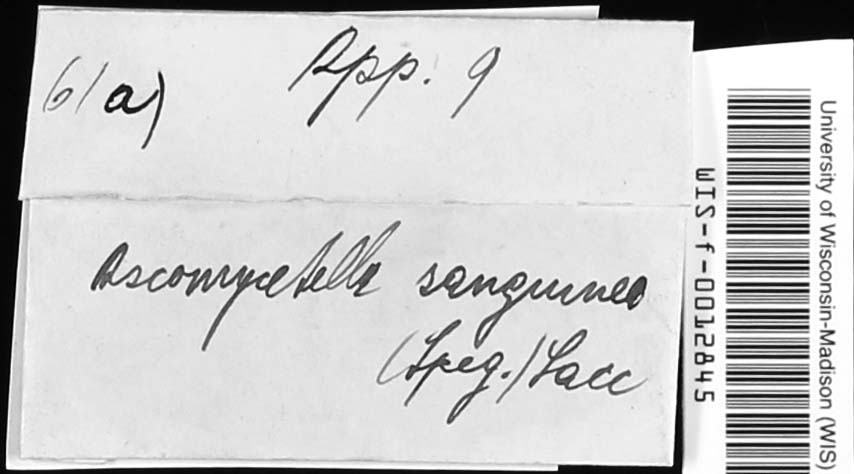 61a) App. 9
Ascomycetella sanguinea
(Speg.) Sacc
WIS-f-0012845
University of Wisconsin-Madison (WIS)